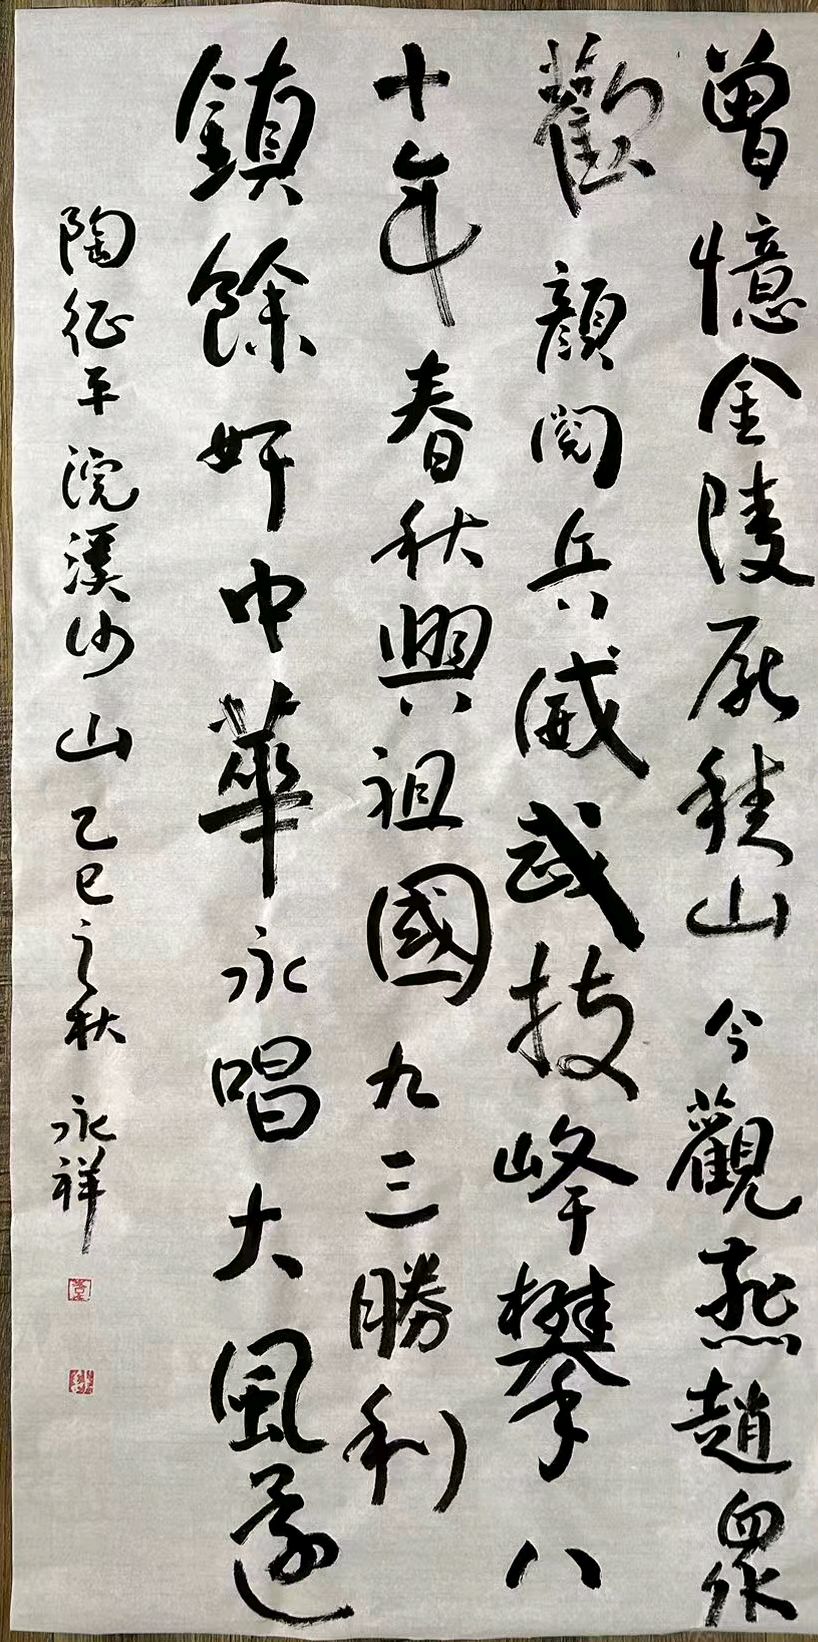 曾憶金陵死積山今觀燕趙眾
歡顏閱兵威武技峰攀八
十年春秋興祖國九三勝利
鎮餘奸中華永唱大風還
陶征平浣溪沙山乙巳之秋永祥